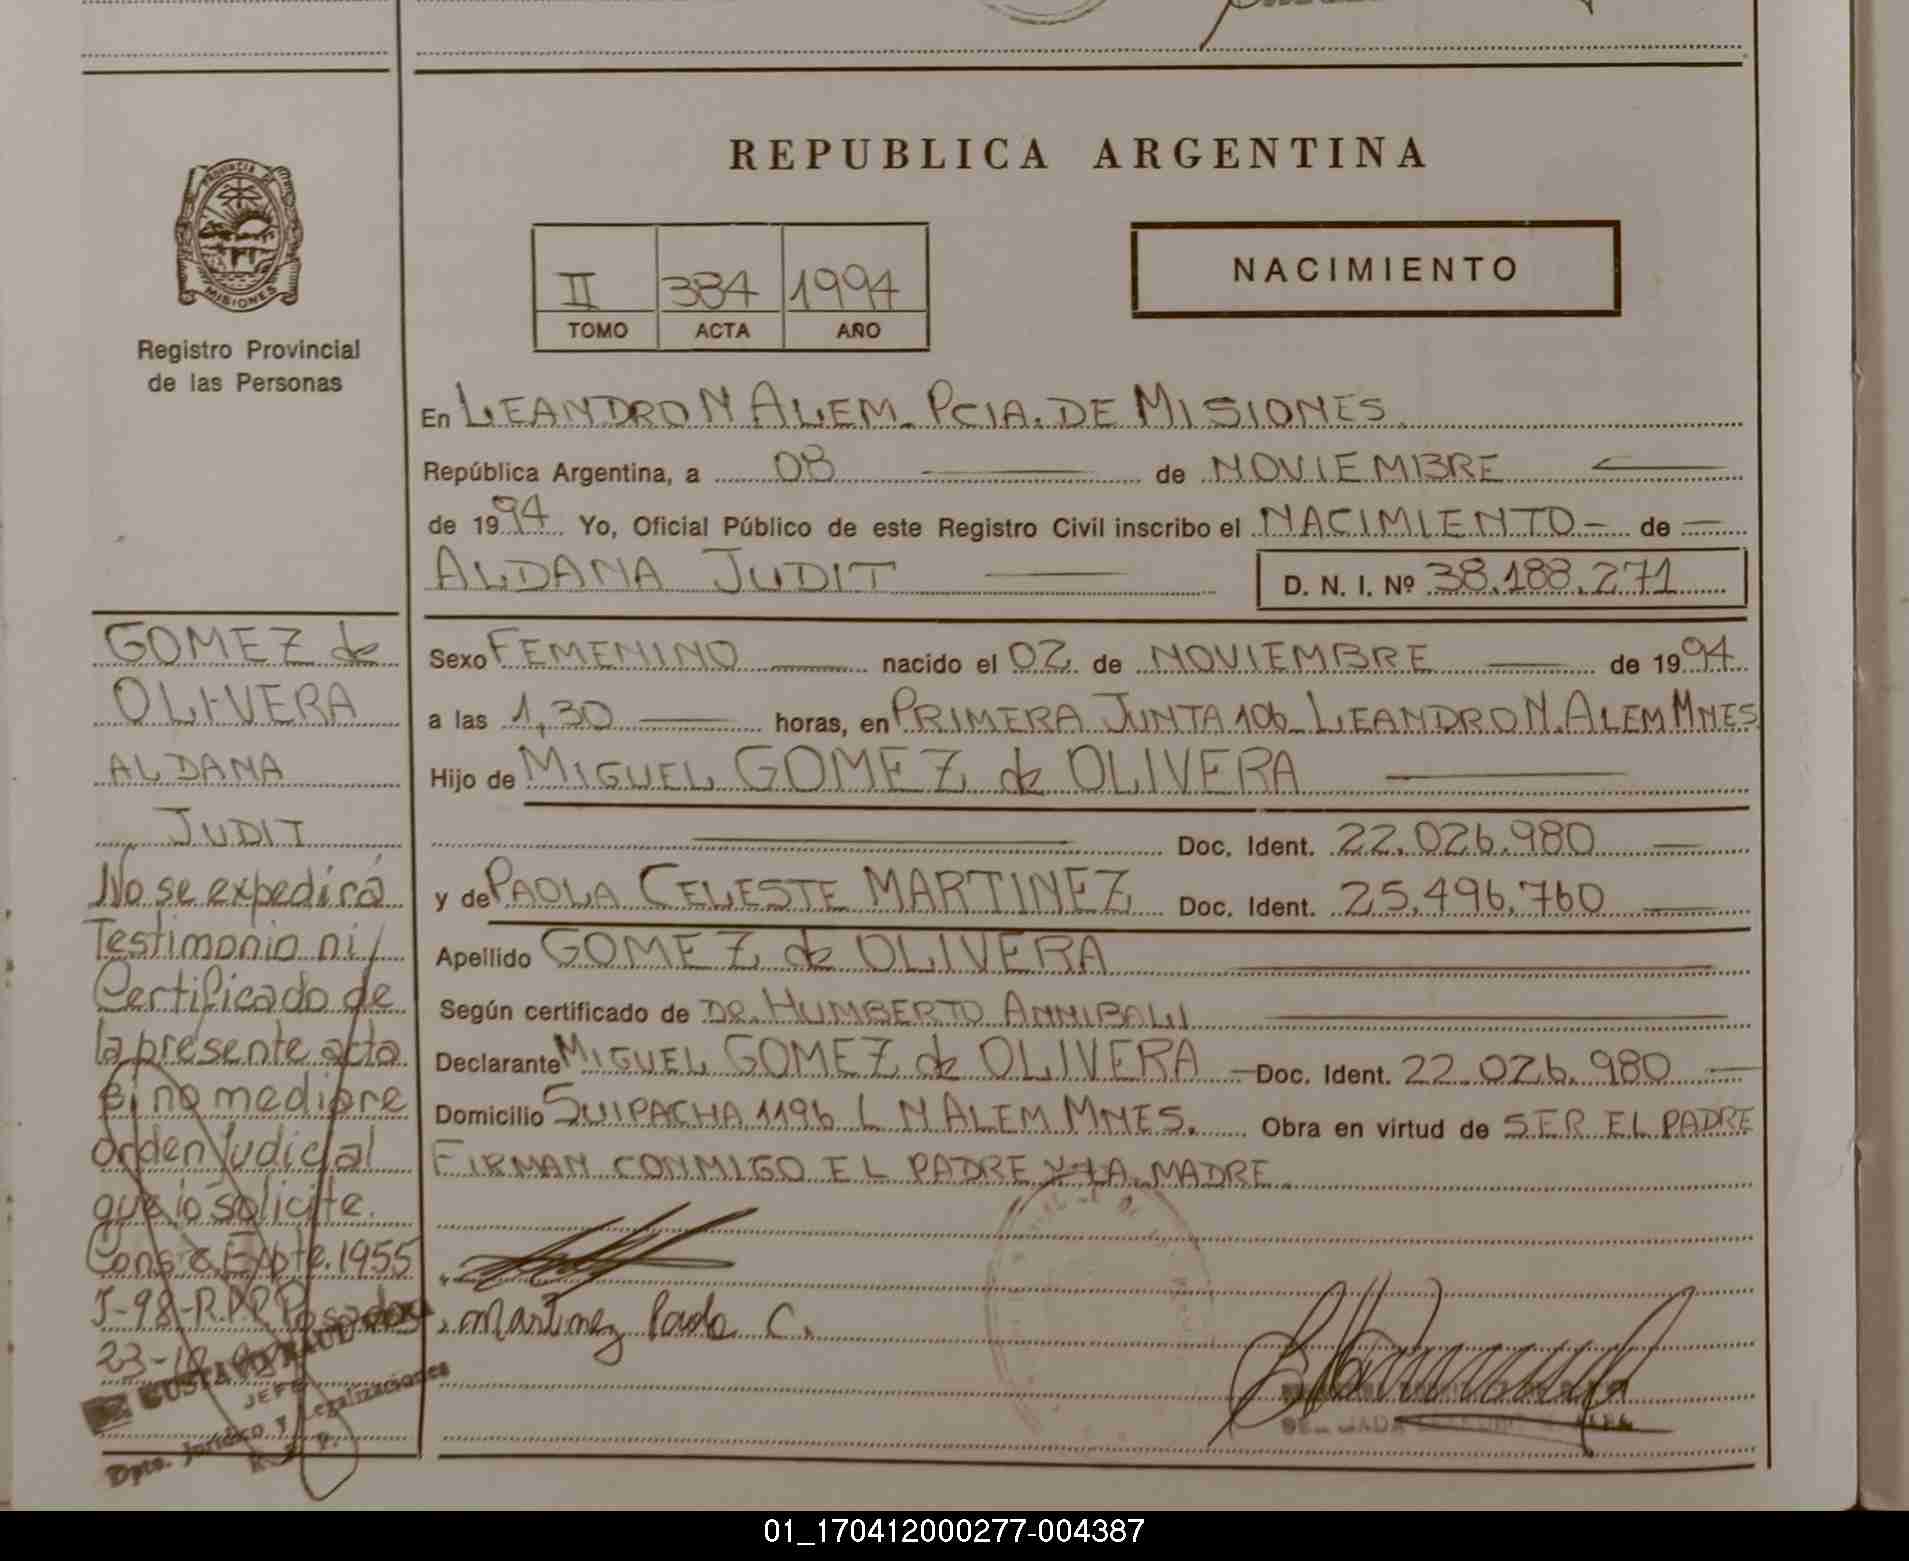 REPUBLICA ARGENTINA
PROVINCIA DE
MISIONES
Registro Provincial
de las Personas
II 384 1994
TOMO ACTA AÑO
NACIMIENTO
En LEANDRO N ALEM. PCIA. DE MISIONES
República Argentina, a 08 de NOVIEMBRE
de 1994 Yo, Oficial Público de este Registro Civil inscribo el NACIMIENTO - de —
ALDANA JUDIT D. N. I. Nº 38.188.271
Sexo FEMENINO nacido el 02 de NOVIEMBRE de 1994
a las 1,30 horas, en PRIMERA JUNTA 106 LEANDRO N. ALEM MNES
Hijo de MIGUEL GOMEZ de OLIVERA
Doc. Ident. 22.026.980
y de PAOLA CELESTE MARTINEZ Doc. Ident. 25.496.760
Apellido GOMEZ de OLIVERA
Según certificado de DR. HUMBERTO ANNIBALI
Declarante MIGUEL GOMEZ de OLIVERA Doc. Ident. 22.026.980
Domicilio SUIPACHA 1196 L N ALEM MNES. Obra en virtud de SER EL PADRE
FIRMAN CONMIGO EL PADRE Y LA MADRE.
Martinez Paola C.
GOMEZ de
OLIVERA
ALDANA
JUDIT
No se expedirá
Testimonio ni
Certificado de
la presente acta
si no mediare
orden Judicial
que lo solicite.
Consta Expte. 1955
J-98-R.P.P. Posadas
23-10
GUSTAVO
JEFE
Dpto. Jurídico y Legalizaciones
R. P. P.
01_170412000277-004387